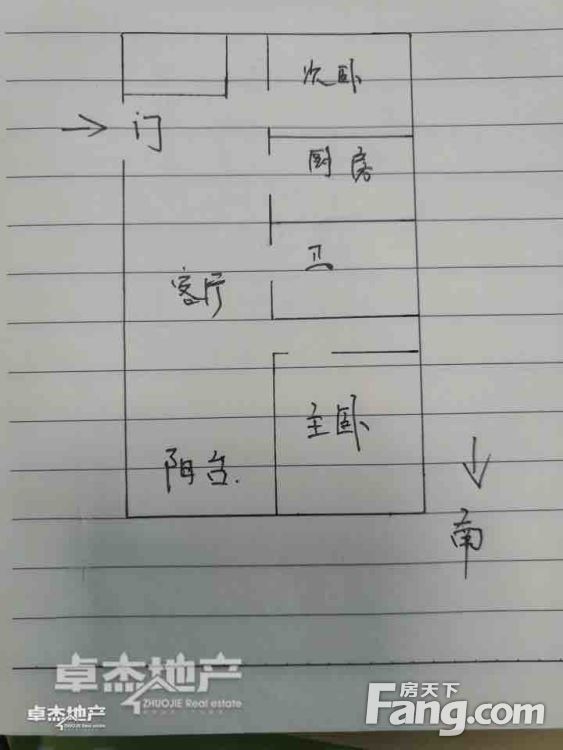 次卧
门
厨房
卫
客厅
主卧
阳台
南
卓杰地产
ZHUOJIE Real estate
卓杰地产
房天下
Fang.com